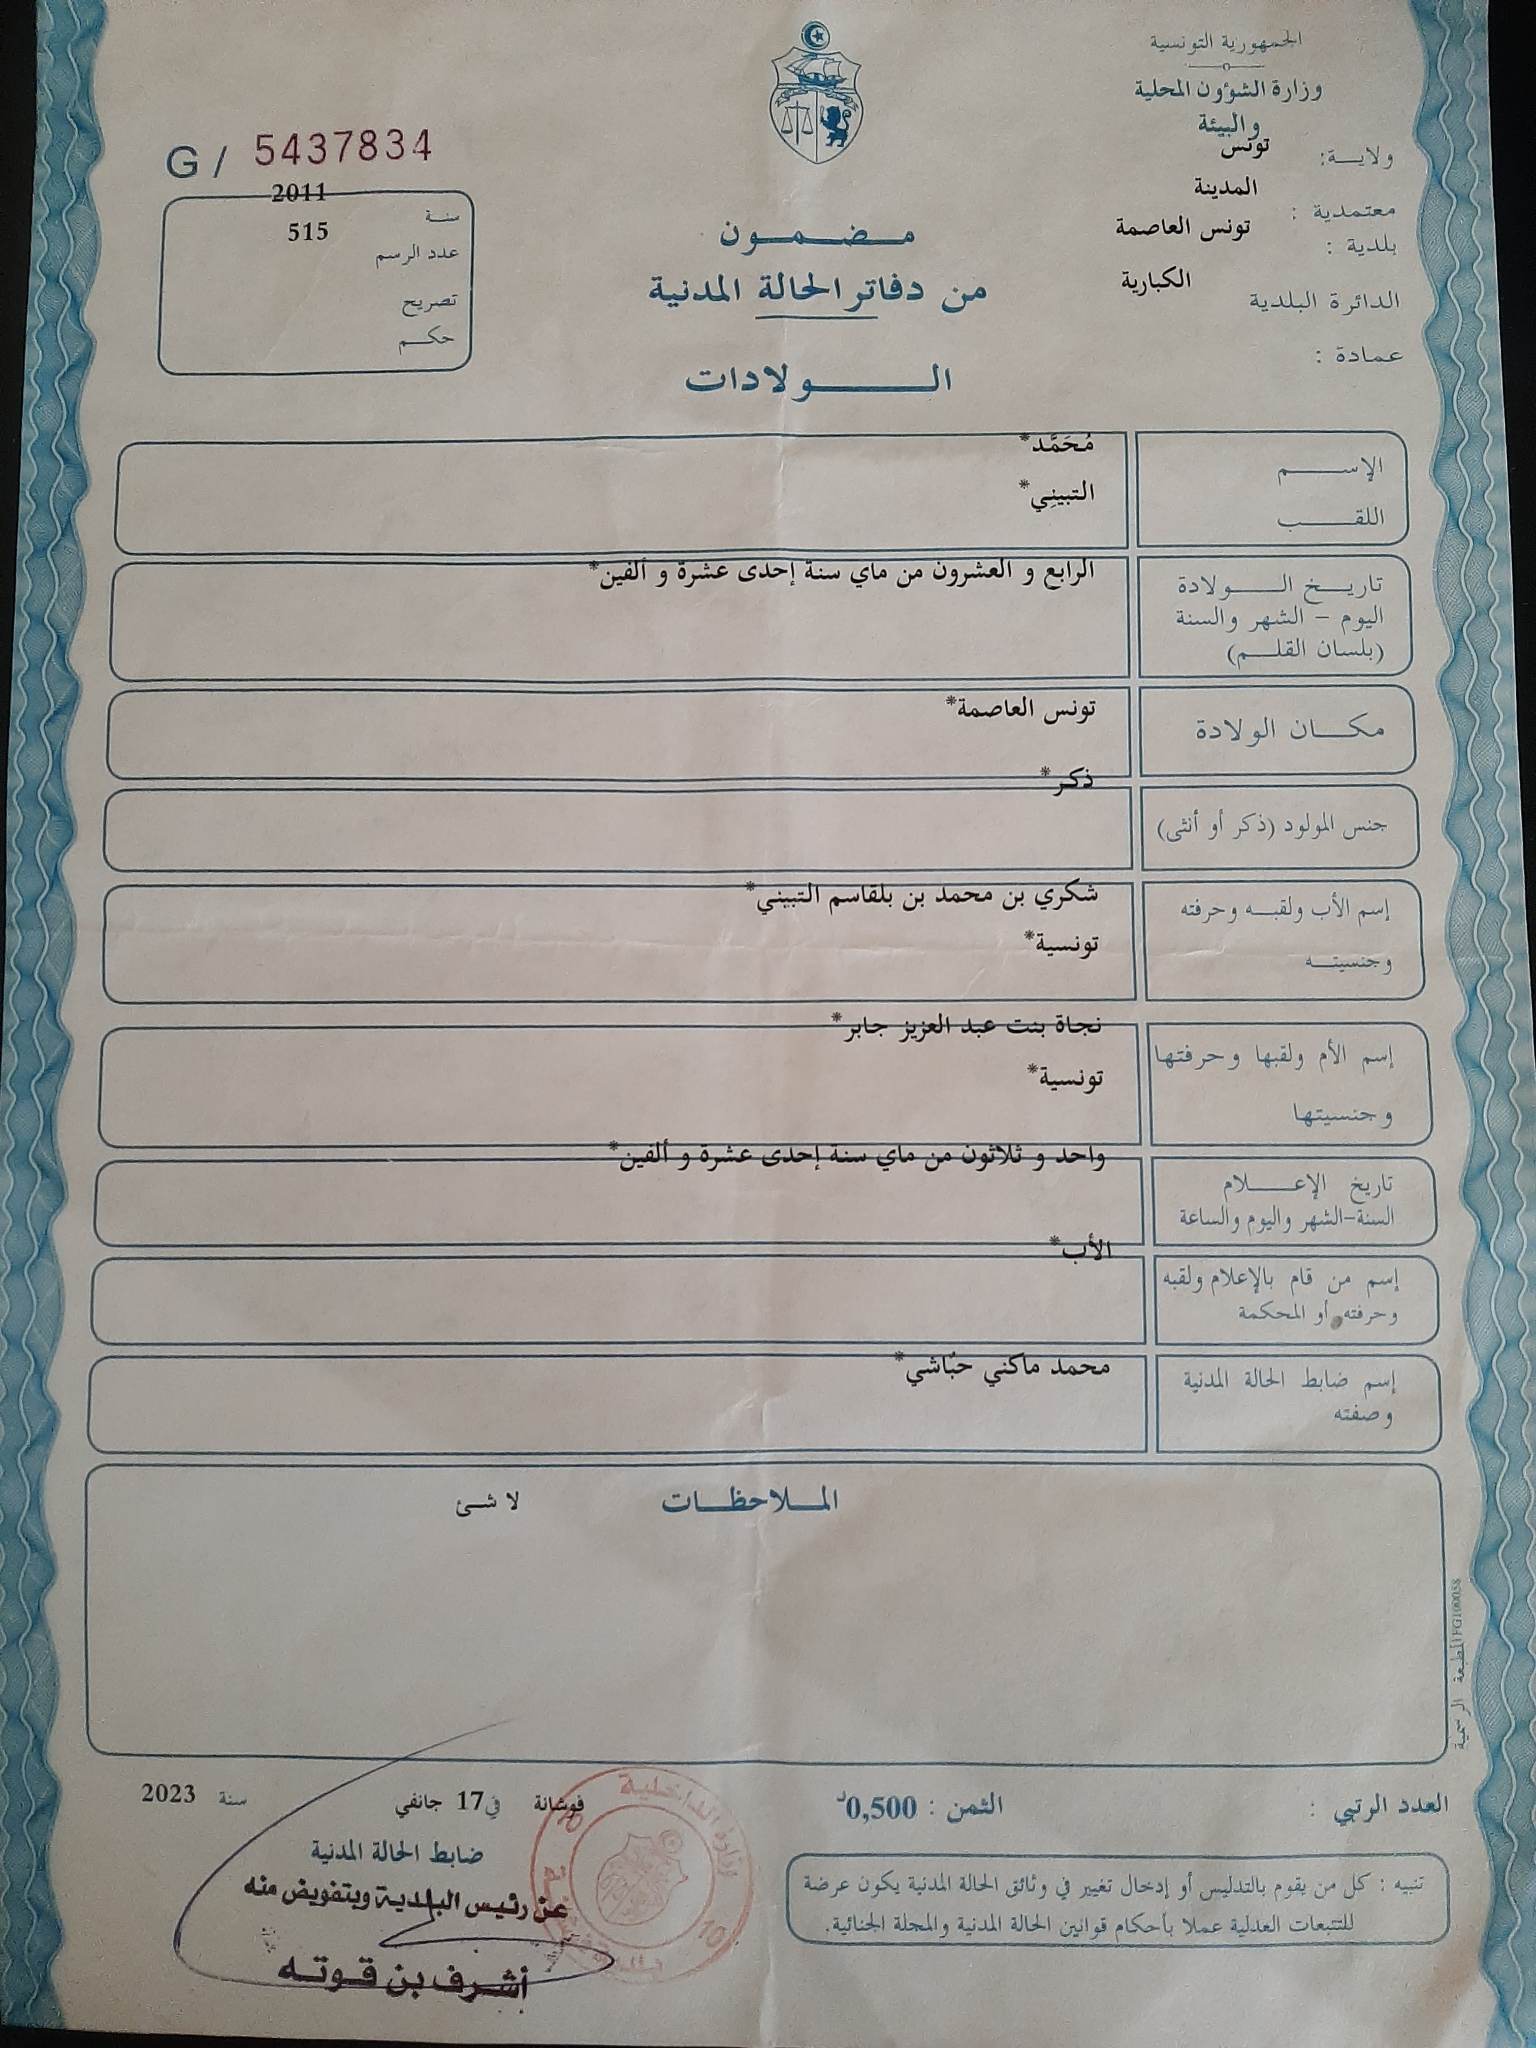 الجمهورية التونسية
وزارة الشؤون المحلية
والبيئة
ولايـــة: تونس
معتمدية : المدينة
بلدية : تونس العاصمة
الدائرة البلدية الكبارية
عمادة :
G / 5437834
سنة 2011
عدد الرسم 515
تصريح
حكم
مضمون
من دفاتر الحالة المدنية
الولادات
الإسم مُحَمَّد*
اللقب التبيني*
تاريخ الولادة الرابع و العشرون من ماي سنة إحدى عشرة و ألفين*
اليوم - الشهر والسنة
(بلسان القلم)
مكان الولادة تونس العاصمة*
جنس المولود (ذكر أو أنثى) ذكر*
إسم الأب ولقبه وحرفته شكري بن محمد بن بلقاسم التبيني*
وجنسيته تونسية*
إسم الأم ولقبها وحرفتها نجاة بنت عبد العزيز جابر*
وجنسيتها تونسية*
تاريخ الإعلام واحد و ثلاثون من ماي سنة إحدى عشرة و ألفين*
السنة-الشهر واليوم والساعة
إسم من قام بالإعلام ولقبه الأب*
وحرفته أو المحكمة
إسم ضابط الحالة المدنية محمد ماكني حبّاشي*
وصفته
الملاحظات لا شئ
المطبعة الرسمية
العدد الرتبي : الثمن : 0,500د
فوشانة في 17 جانفي سنة 2023
ضابط الحالة المدنية
عن رئيس البلدية وبتفويض منه
أشرف بن قوته
وزارة الداخلية
10
تنبيه : كل من يقوم بالتدليس أو إدخال تغيير في وثائق الحالة المدنية يكون عرضة
للتتبعات العدلية عملا بأحكام قوانين الحالة المدنية والمجلة الجنائية.